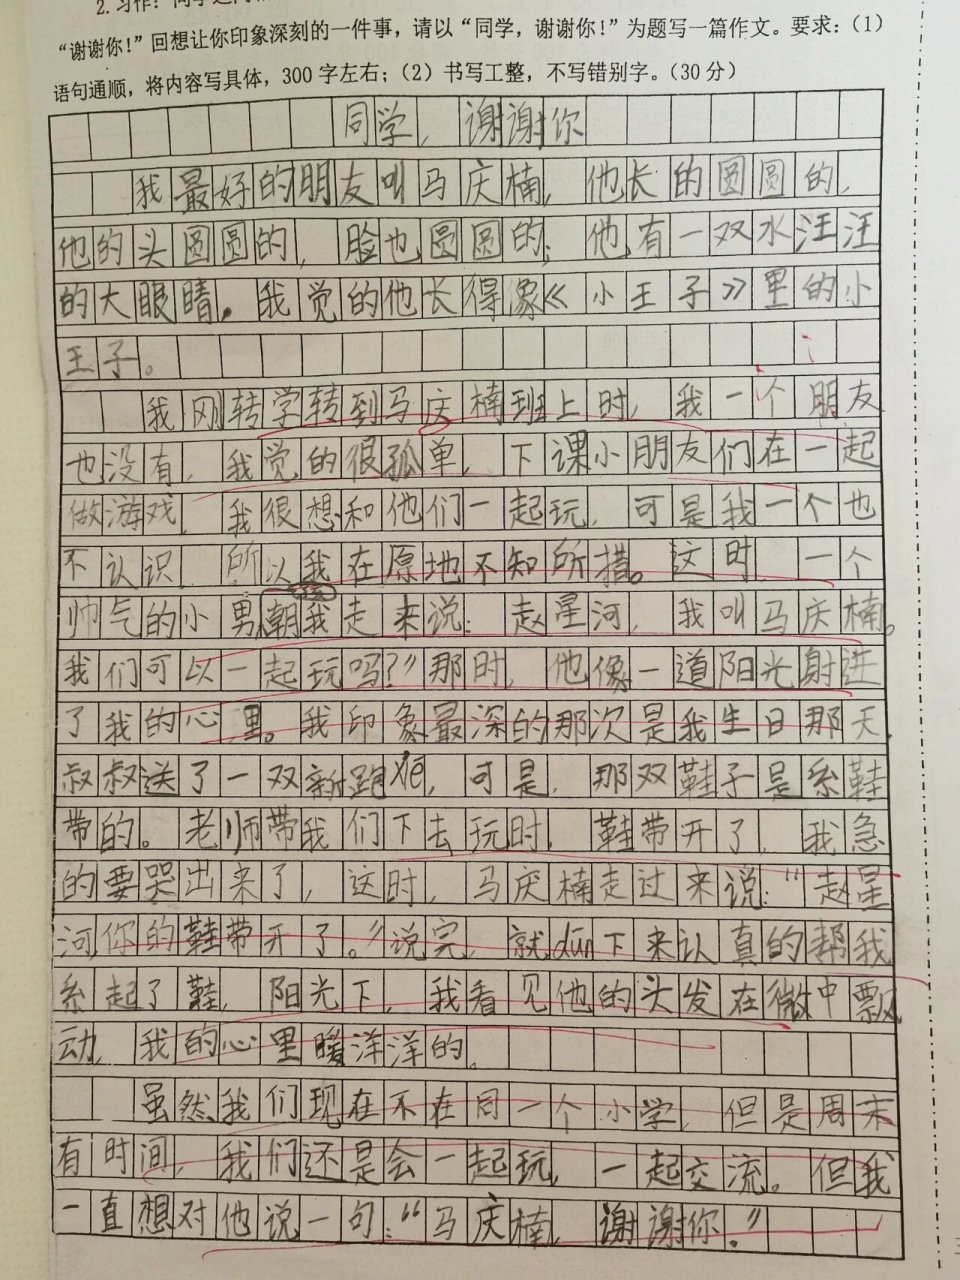 2.习作：同学之间
“谢谢你！”回想让你印象深刻的一件事，请以“同学，谢谢你！”为题写一篇作文。要求：（1）
语句通顺，将内容写具体，300字左右；（2）书写工整，不写错别字。（30分）
同学，谢谢你
我最好的朋友叫马庆楠，他长的圆圆的，
他的头圆圆的，脸也圆圆的；他有一双水汪汪
的大眼睛。我觉的他长得像《小王子》里的小
王子。
我刚转学转到马庆楠班上时，我一个朋友
也没有，我觉的很孤单，下课小朋友们在一起
做游戏，我很想和他们一起玩，可是我一个也
不认识，所以我在原地不知所措。这时，一个
帅气的小男朝我走来说：赵星河，我叫马庆楠。
我们可以一起玩吗？”那时，他像一道阳光射进
了我的心里。我印象最深的那次是我生日那天，
叔叔送了一双新跑鞋，可是，那双鞋子是系鞋
带的。老师带我们下去玩时，鞋带开了，我急
的要哭出来了，这时，马庆楠走过来说：“赵星
河，你的鞋带开了。”说完，就dūn下来认真的帮我
系起了鞋，阳光下，我看见他的头发在微中飘
动，我的心里暖洋洋的。
虽然我们现在不在同一个小学，但是周末
有时间，我们还是会一起玩，一起交流。但我
一直想对他说一句：“马庆楠，谢谢你。”